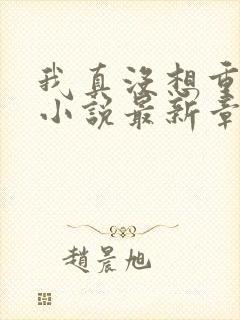 我真没想重
小说最新章
趙晨旭